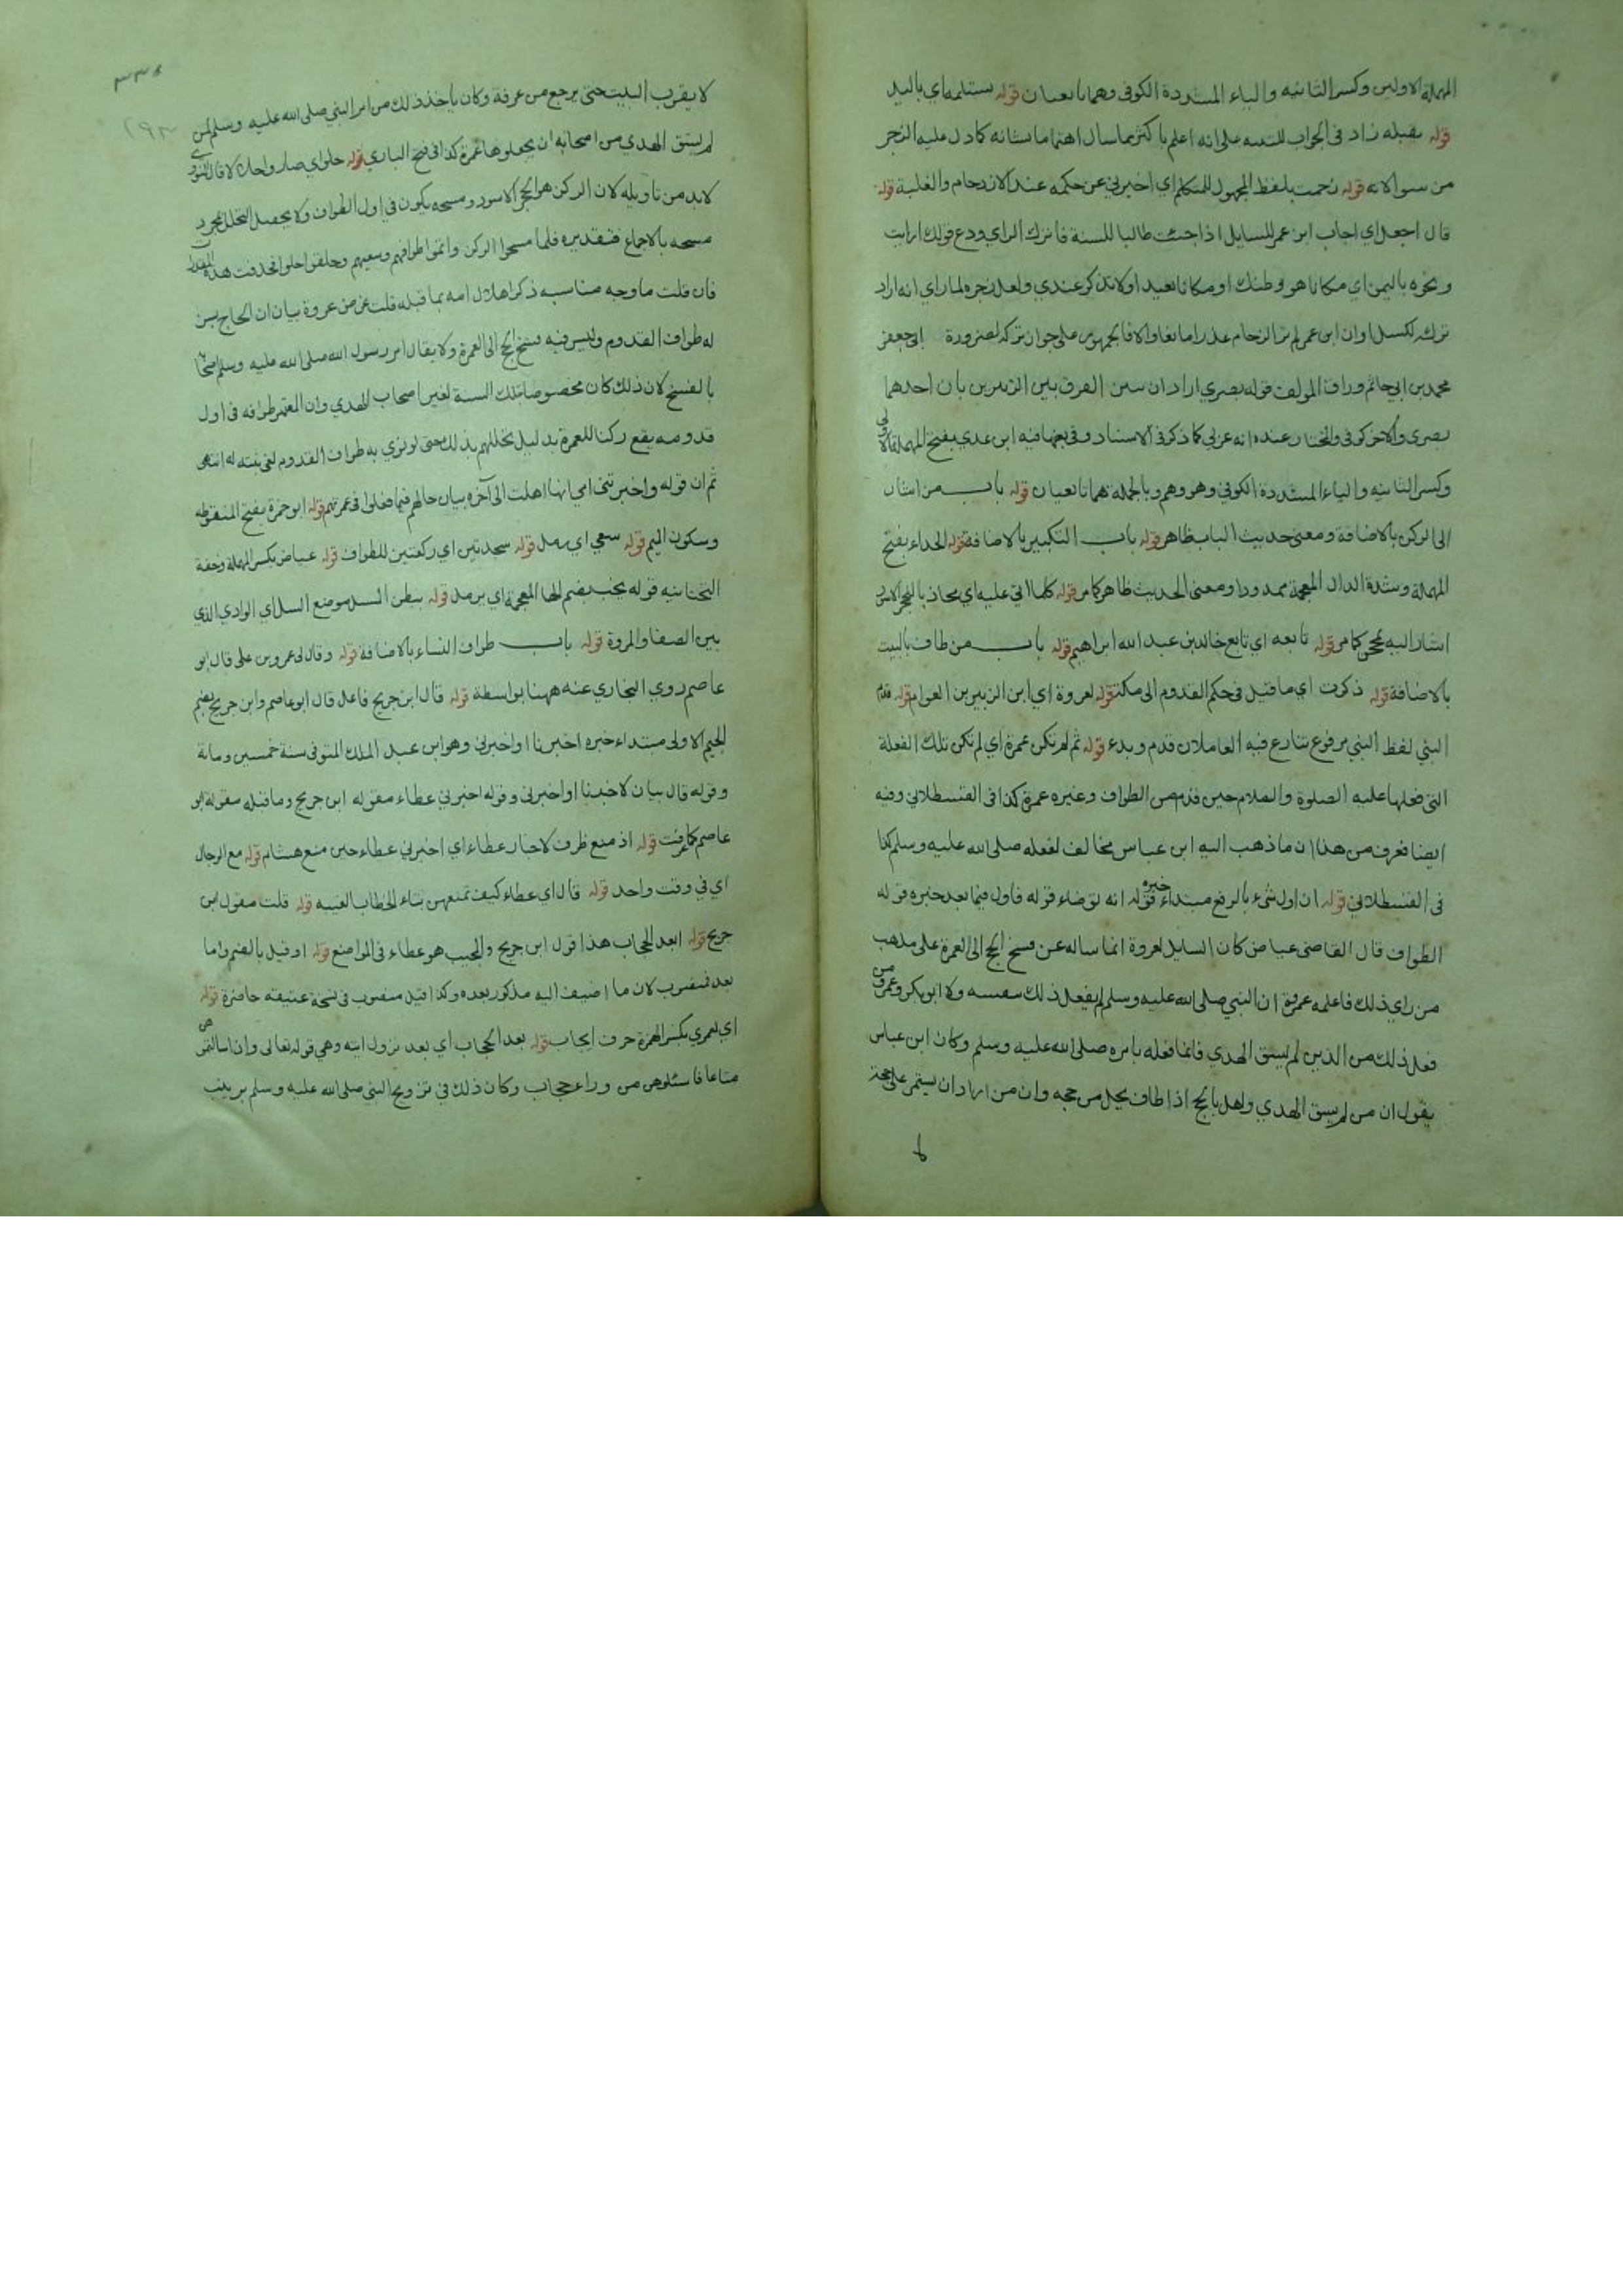 المهملة الاولين وكسر الثانيه والياء المشددة الكوفى وهما تابعيان قوله يستلمه اي باليد
قوله يقبله زاد فى الجواب للتنبيه على انه اعلم باكثر مما سال اهتماما بشانه كما دل عليه الزجر
من سوالاته قوله زحمت بلفظ المجهول للمتكلم اي اخبرني عن حكمه عند الازدحام والغلبة قوله
قال اجعل اي اجاب ابن عمر للسايل اذا جئت طالبا للسنة فاترك الراي ودع قولك ارايت
ونحوه باليمن اي مكانا هو وطنك او مكانا بعيدا ولا تذكر عندي ولعل زجره لما راي انه اراد
تركه لكسل او ان ابن عمر لم ير الزحام عذرا مانعا والا فالجمهور على جواز تركه لضرورة ابى جعفر
محمد بن ابي حاتم وراق المولف قوله بصري اراد ان بين الفرق بين الزبيرين بان احدهما
بصرى والاخر كوفى والمختار عنده انه عربي كما ذكر فى الاسناد وفى بعضها فيه ابن عدي بفتح المهملة الاولى
وكسر الثانيه والياء المشددة الكوفي وهو وهم وبالجملة هما تابعيان قوله باب من اشار
الى الركن بالاضافة ومعنى حديث الباب ظاهر قوله باب التكبير بالاضافة قوله الحذاء بفتح
المهملة وشدة الذال المعجمة ممدودا ومعنى الحديث ظاهر كما مر قوله كلما اتي عليه اي يحاذ بالحجر الاسود
اشار اليه بمحجن كما مر قوله تابعه اي تابع خالد بن عبد الله ابراهيم قوله باب من طاف بالبيت
بالاضافة قوله ذكرت اي ما قيل فى حكم القدوم الى مكة قوله لعروة اي ابن الزبير بن العوام قوله قدم
النبي لفظ النبي مرفوع تنازع فيه العاملان قدم وبدء قوله ثم لم تكن عمرة اي لم تكن تلك الفعلة
التى فعلها عليه الصلوة والسلام حين قدم من الطواف وغيره عمرة كذا فى القسطلاني وفيه
ايضا فعرف من هذا ان ما ذهب اليه ابن عباس مخالف لفعله صلى الله عليه وسلم كذا
فى القسطلاني قوله ان اول شيء بالرفع مبتداء خبره قوله انه توضاء قوله فاول فيما بعد خبره قوله
الطواف قال القاضى عياض كان السايل لعروة انما ساله عن فسخ الحج الى العمرة على مذهب
من راي ذلك فاعلمه عروة ان النبي صلى الله عليه وسلم لم يفعل ذلك بنفسه ولا ابو بكر وعمر ومن
فعل ذلك من الذين لم يسق الهدي فانما فعله بامره صلى الله عليه وسلم وكان ابن عباس
يقول ان من لم يسق الهدي واهل بالحج اذا طاف يحل من حجه وان من اراد ان يستمر على حجة
لا يقرب البيت حتى يرجع من عرفة وكان ياخذ ذلك من امر النبي صلى الله عليه وسلم لمن
لم يسق الهدي من اصحابه ان يجعلوها عمرة كذا فى فتح الباري قوله حلوا اي صاروا حلالا قال النووي
لا بد من تاويله لان الركن هو الحجر الاسود ومسحه يكون في اول الطواف ولا يحصل التحلل بمجرد
مسحه بالاجماع فتقديره فلما مسحوا الركن واتموا طوافهم وسعيهم وحلقوا حلوا فحذفت هذه المقدرات
فان قلت ما وجه مناسبه ذكر اهلال امه بما قبله قلت غرض عروة بيان ان الحاج يسن
له طواف القدوم وليس فيه فسخ الحج الى العمرة ولا يقال امر رسول الله صلى الله عليه وسلم اصحابه
بالفسخ لان ذلك كان مخصوصا بتلك السنة لغير اصحاب الهدي وان المعتمر طوافه فى اول
قدومه يقع ركنا للعمرة بدليل تحللهم بذلك حتى لو نوي به طواف القدوم لغى نيته له انتهى
ثم ان قوله واخبرتنى امي انها اهلت الى آخره بيان حالهم فيما فعلوا فى عمرتهم قوله ابو ضمرة بفتح المنقوطه
وسكون الميم قوله سعي اي رمل قوله سجدتين اي ركعتين للطواف قوله عياض بكسر المهملة وخفة
التحتانيه قوله يخب بضم الخاء المعجمة اي يرمل قوله ببطن المسيل موضع السيل اي الوادي الذي
بين الصفا والمروة قوله باب طواف النساء بالاضافة قوله وقال لى عمرو بن على قال ابو
عاصم روي البخاري عنه ههنا بواسطة قوله قال ابن جريج فاعل قال ابو عاصم وابن جريج بضم
الجيم الاولى مبتداء خبره اخبرنا او اخبرنى وهو ابن عبد الملك المتوفى سنة خمسين ومائة
وقوله قال بيان لاخبرنا او اخبرنى وقوله اخبرني عطاء مقوله ابن جريج وما قبله مقوله ابو
عاصم كما عرفت قوله اذ منع ظرف لاخبار عطاء اي اخبرني عطاء حين منع هشام قوله مع الرجال
اي في وقت واحد قوله قال اي عطاء كيف تمنعهن بتاء الخطاب الغيبه قوله قلت مقول ابن
جريج قوله ابعد الحجاب هذا قول ابن جريج والمجيب هو عطاء فى المواضع قوله او قبل بالضم واما
بعد فمنصوب لان ما اضيف اليه مذكور بعده وكذا قبل منصوب فى نسخة عتيقه حاضرة قوله
اي لعمري بكسر الهمزة حرف ايجاب قوله بعد الحجاب اي بعد نزول آيته وهي قوله تعالى واذا سالتموهن
متاعا فاسئلوهن من وراء حجاب وكان ذلك في تزويج النبي صلى الله عليه وسلم بزينب